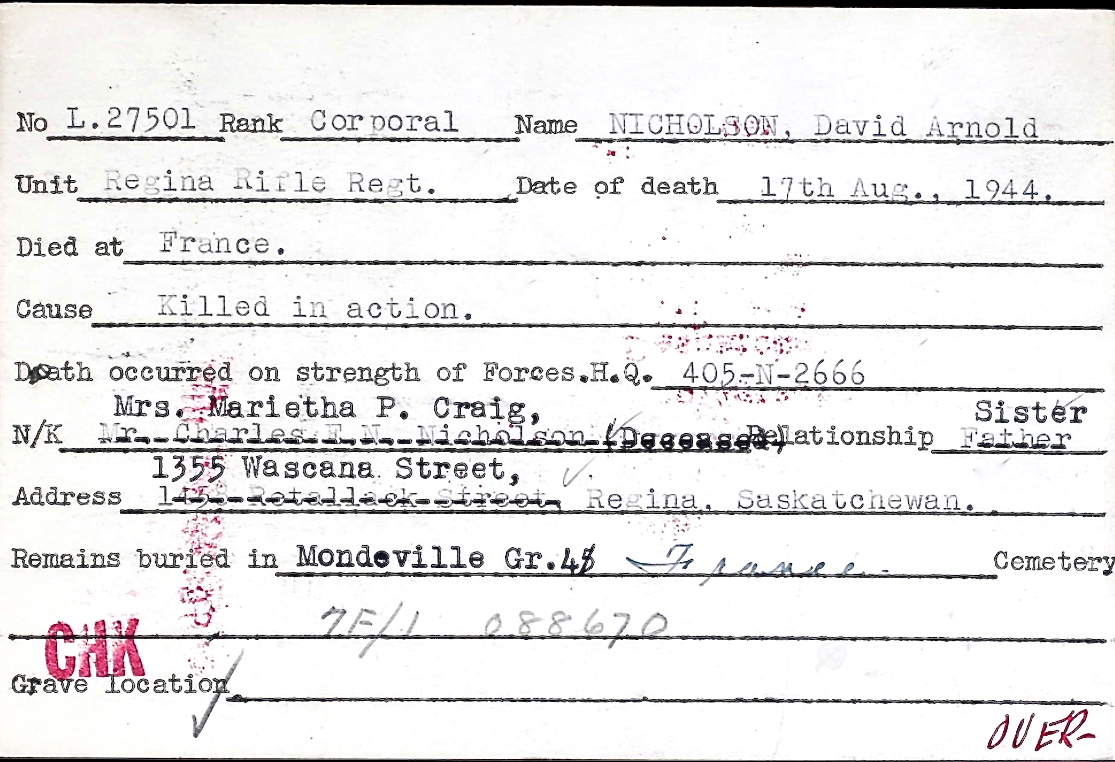 No L.27501 Rank Corporal Name NICHOLSON, David Arnold
Unit Regina Rifle Regt. Date of death 17th Aug., 1944.
Died at France.
Cause Killed in action.
Death occurred on strength of Forces.H.Q. 405-N-2666
Mrs. Marietha P. Craig, Sister
N/K Mr. Charles F.N. Nicholson (Deceased) Relationship Father
1355 Wascana Street,
Address Retallack Street, Regina, Saskatchewan.
Remains buried in Mondeville Gr. France. Cemetery
7F/1 088670
CHK
Grave location
OVER-